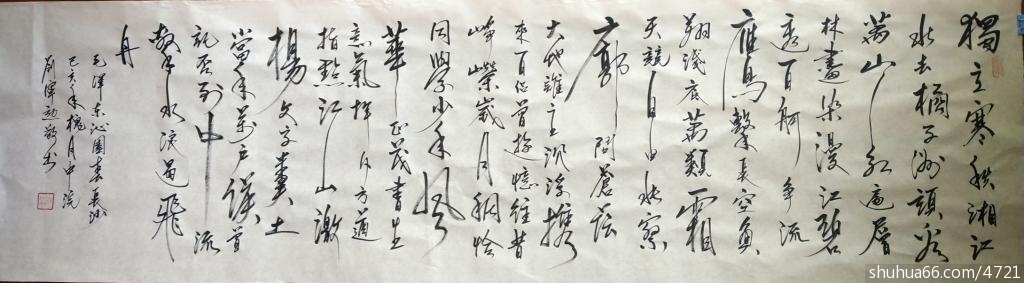 獨立寒秋湘江
北去橘子洲頭看
萬山紅遍層
林盡染漫江碧
透百舸争流
鷹擊長空魚
翔淺底萬類霜
天競自由悵寥
廓問蒼茫
大地誰主沉浮攜
來百侣曾遊憶往昔
崢嶸歲月稠恰
同學少年風
華正茂書生
意氣揮斥方遒
指點江山激
揚文字糞土
當年萬户侯曾
記否到中流
擊水浪遏飛
舟
毛澤東沁園春長沙
己亥年槐月中浣
shuhua66.com/4721